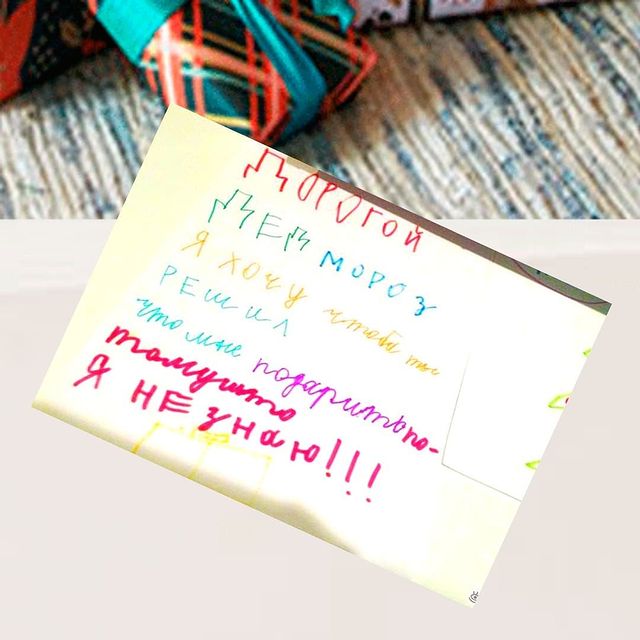 ДОРОГОЙ
ДЕД МОРОЗ
Я ХОЧУ чтобы ты
РЕШИЛ
что мне подарить по-
томушто
Я НЕ ЗНАЮ!!!